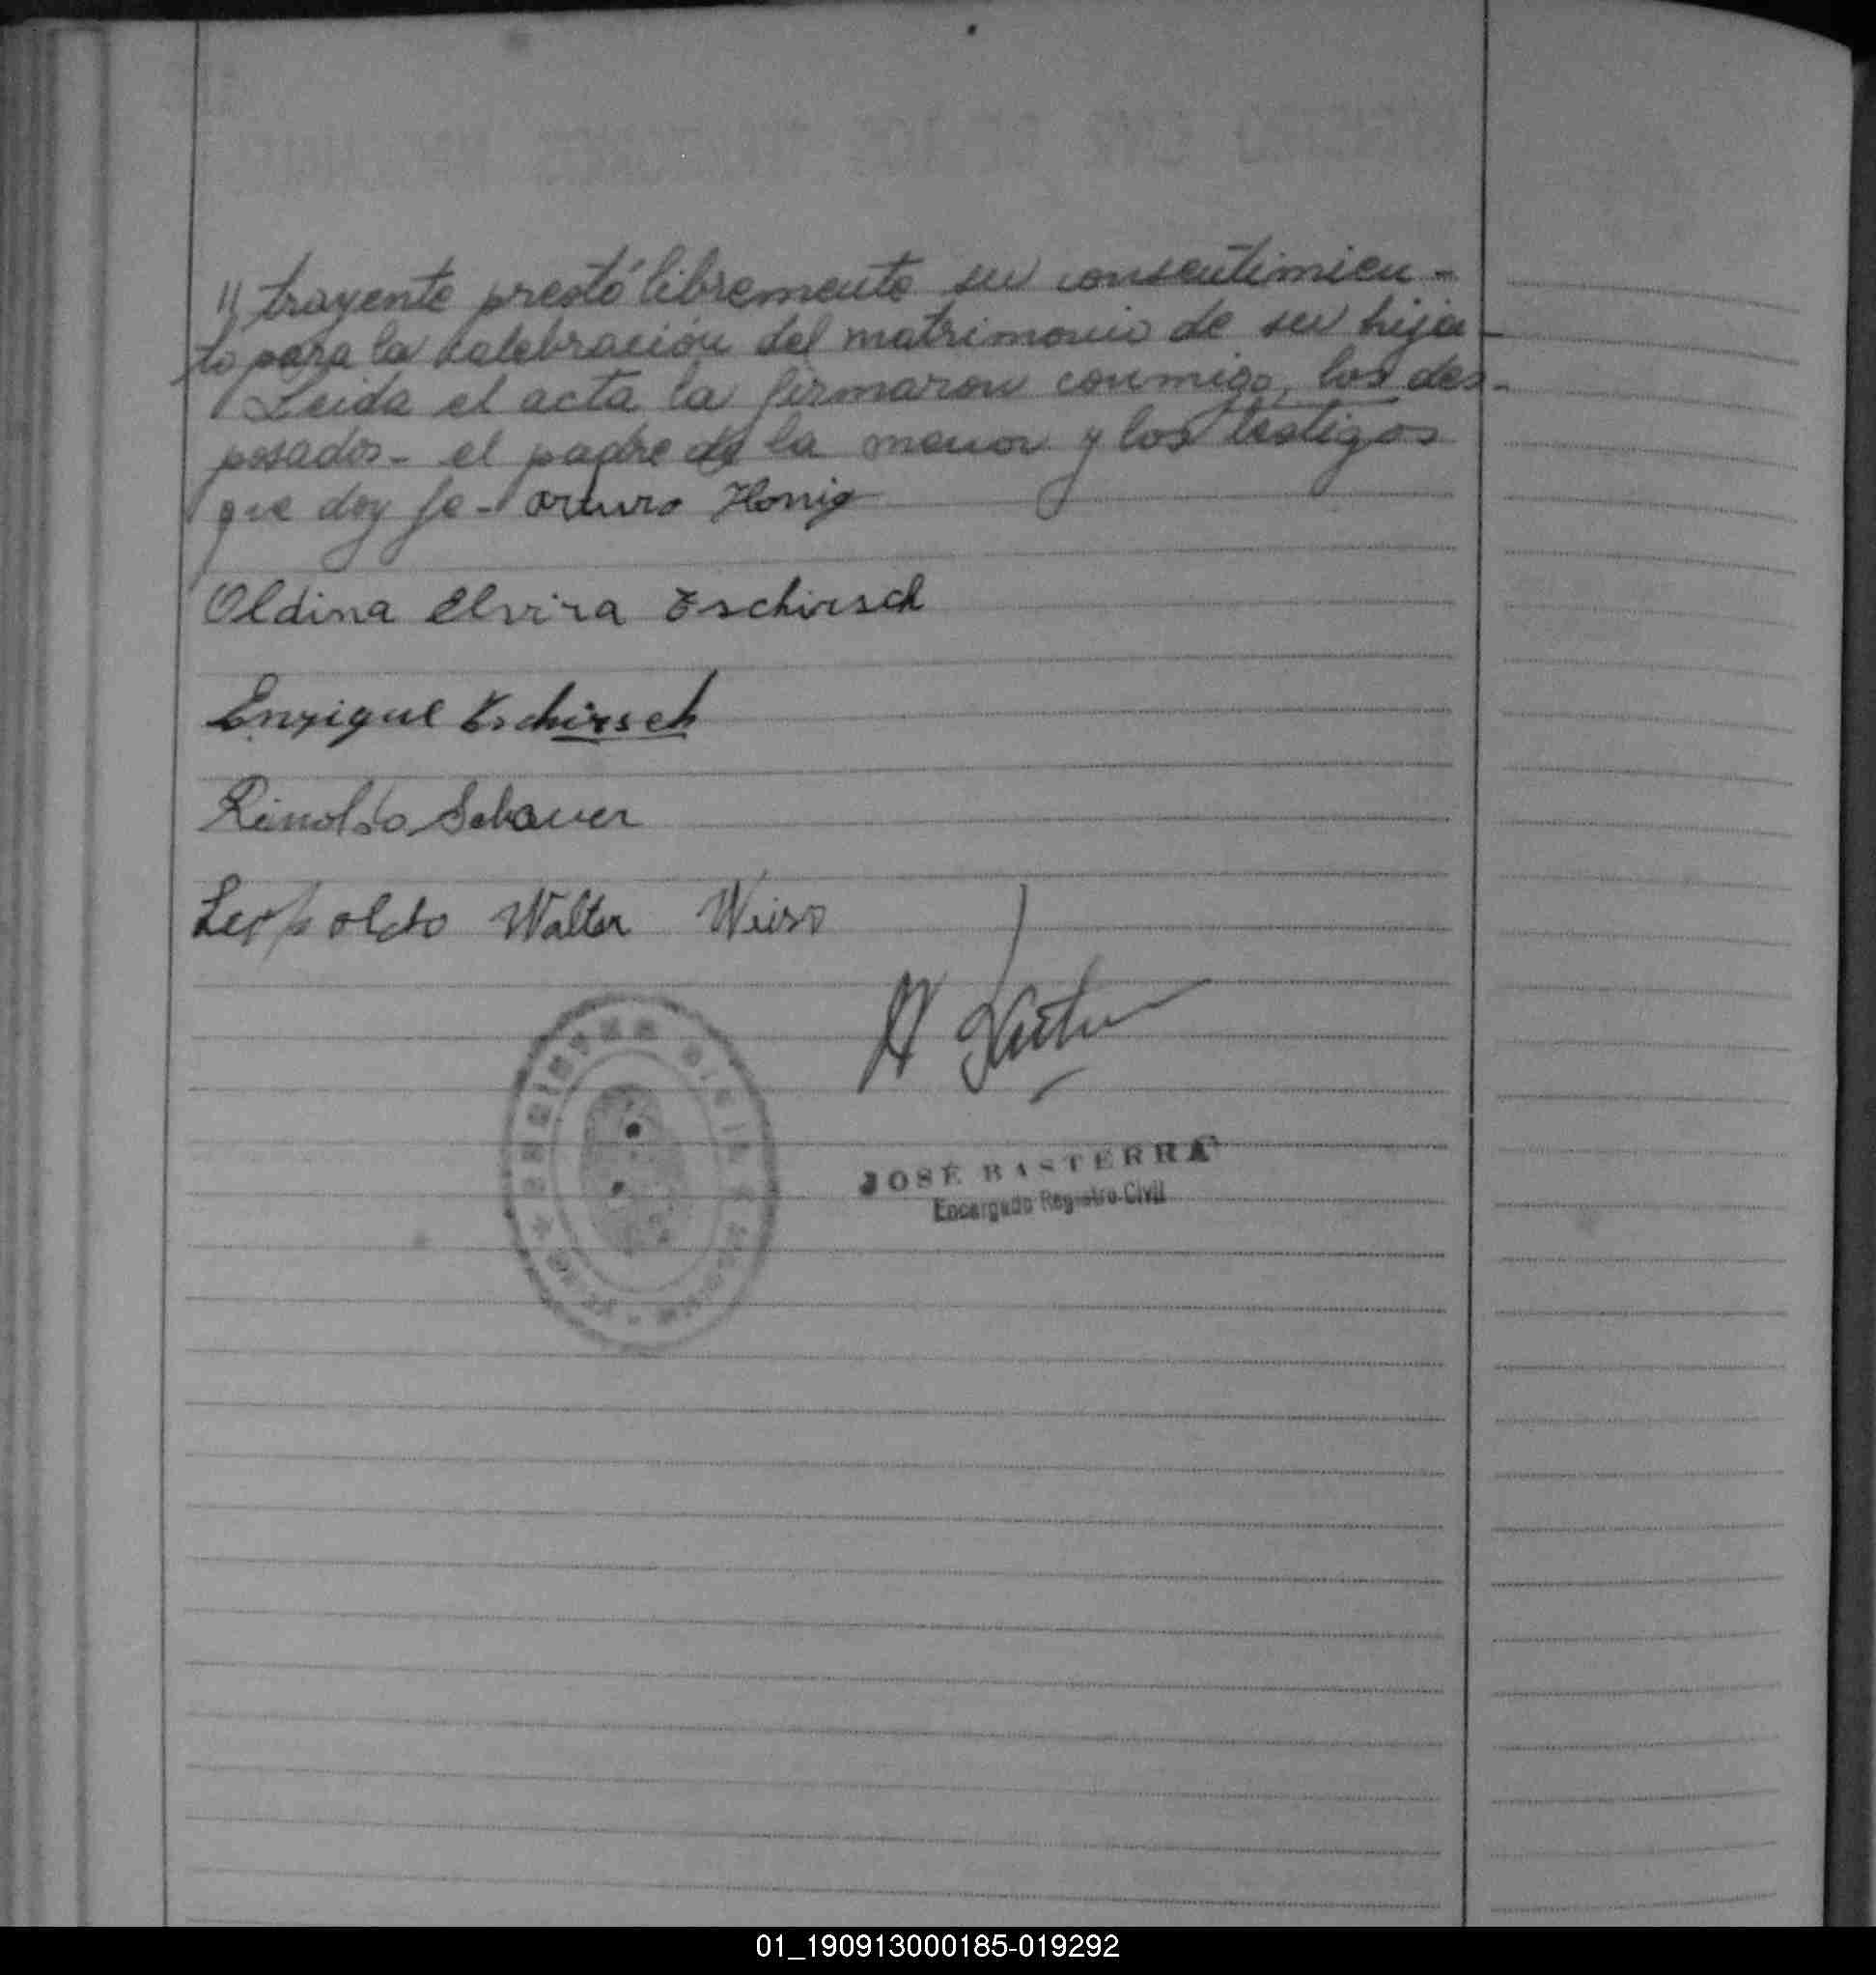 " trayente prestó libremente su consentimien-
to para la celebración del matrimonio de su hija-
Leida el acta la firmaron conmigo, los des-
posados- el padre de la menor y los testigos
que doy fe- Arturo Honig
Oldina Elvira Eschirsch
Enrique Eschirsch
Rinoldo Schauer
Leopoldo Walter Weiss
JOSÉ BASTERRA
Encargado Registro Civil
01_190913000185-019292